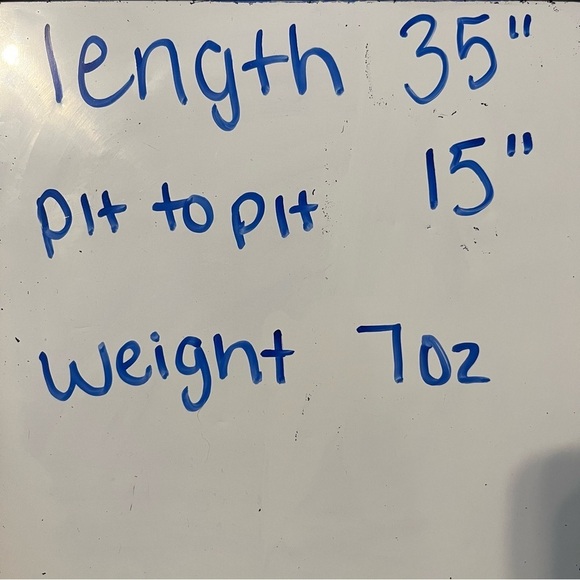 length 35"
pit to pit 15"
weight 7oz